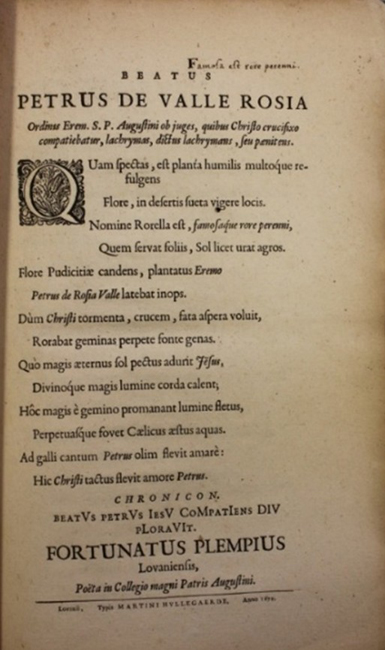 Famosa est rore perenni.
BEATUS
PETRUS DE VALLE ROSIA
Ordinis Erem. S. P. Augustini ob juges, quibus Christo crucifixo
compatiebatur, lachrymas, dictus lachrymans, seu pœnitens.
QUam spectas, est planta humilis multoque re-
fulgens
Flore, in desertis sueta vigere locis.
Nomine Rorella est, famosaque rore perenni,
Quem servat foliis, Sol licet urat agros.
Flore Pudicitiæ candens, plantatus Eremo
Petrus de Rosia Valle latebat inops.
Dùm Christi tormenta, crucem, fata aspera voluit,
Rorabat geminas perpete fonte genas.
Quò magis æternus sol pectus adurit Jesus,
Divinoque magis lumine corda calent;
Hôc magis è gemino promanant lumine fletus,
Perpetuasque fovet Cælicus æstus aquas.
Ad galli cantum Petrus olim flevit amarè:
Hic Christi tactus flevit amore Petrus.
CHRONICON.
BEATVs PETRVs IEsV CoMPATIens DIV
PLoraVIT.
FORTUNATUS PLEMPIUS
Lovaniensis,
Poëta in Collegio magni Patris Augustini.
Lovanii, Typis MARTINI HVLLEGAERDE, Anno